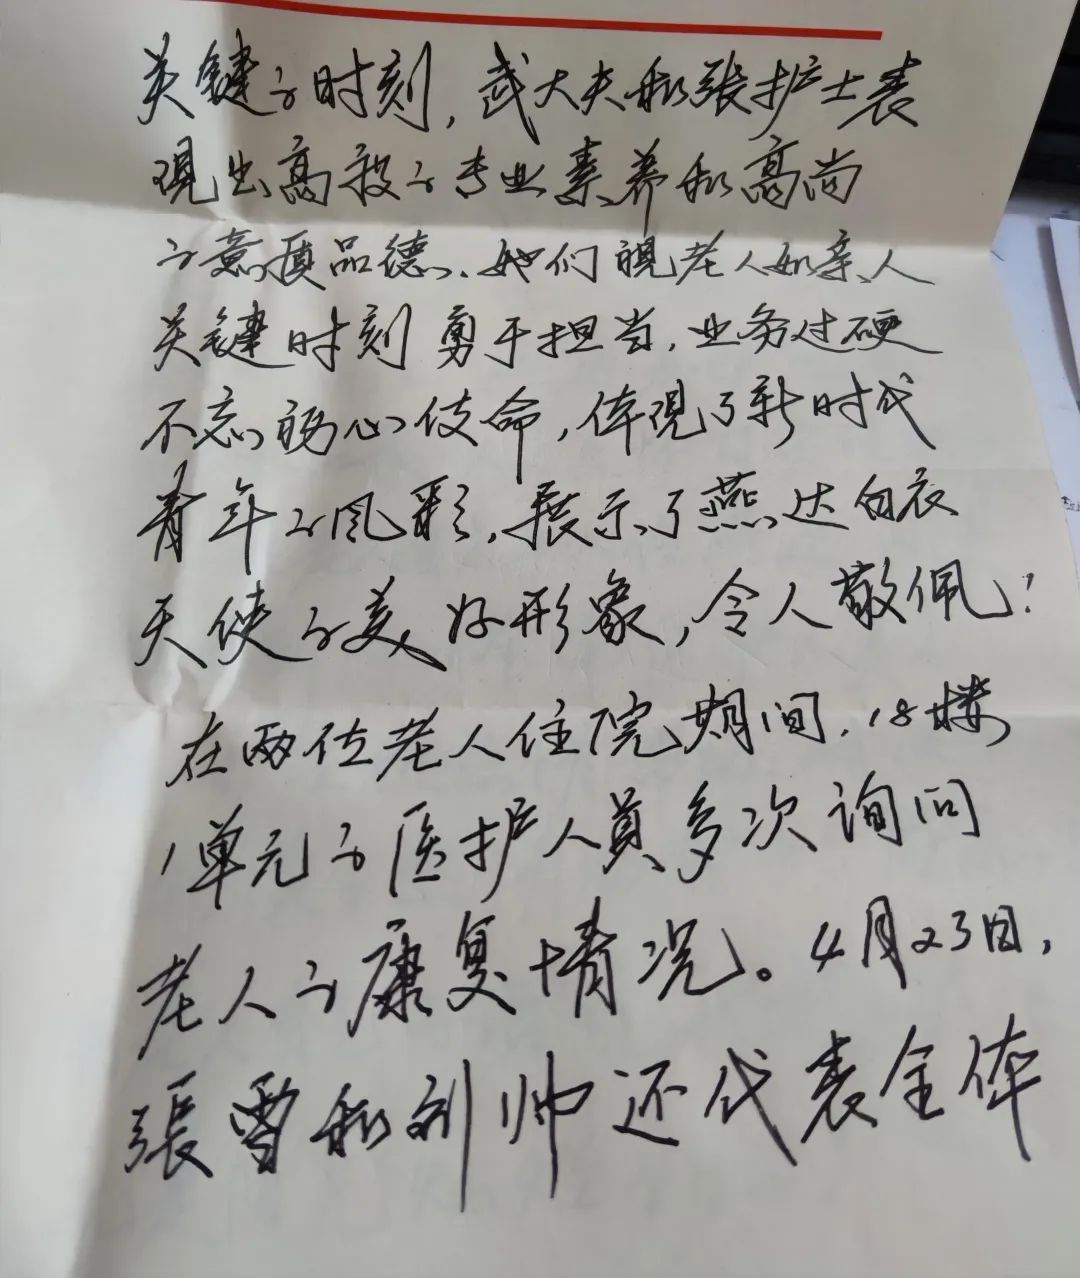 关键的时刻，武大夫和张护士表
现出高超的专业素养和高尚
的意质品德、她们視老人如亲人
关键时刻勇于担当，业务过硬
不忘初心使命，体现了新时代
青年的风彩，展示了燕达白衣
天使的美好形象，令人敬佩！
在两位老人住院期间，18楼
1单元的医护人員多次询问
老人的康复情况。4月23日，
張雪和刘帅还代表全体